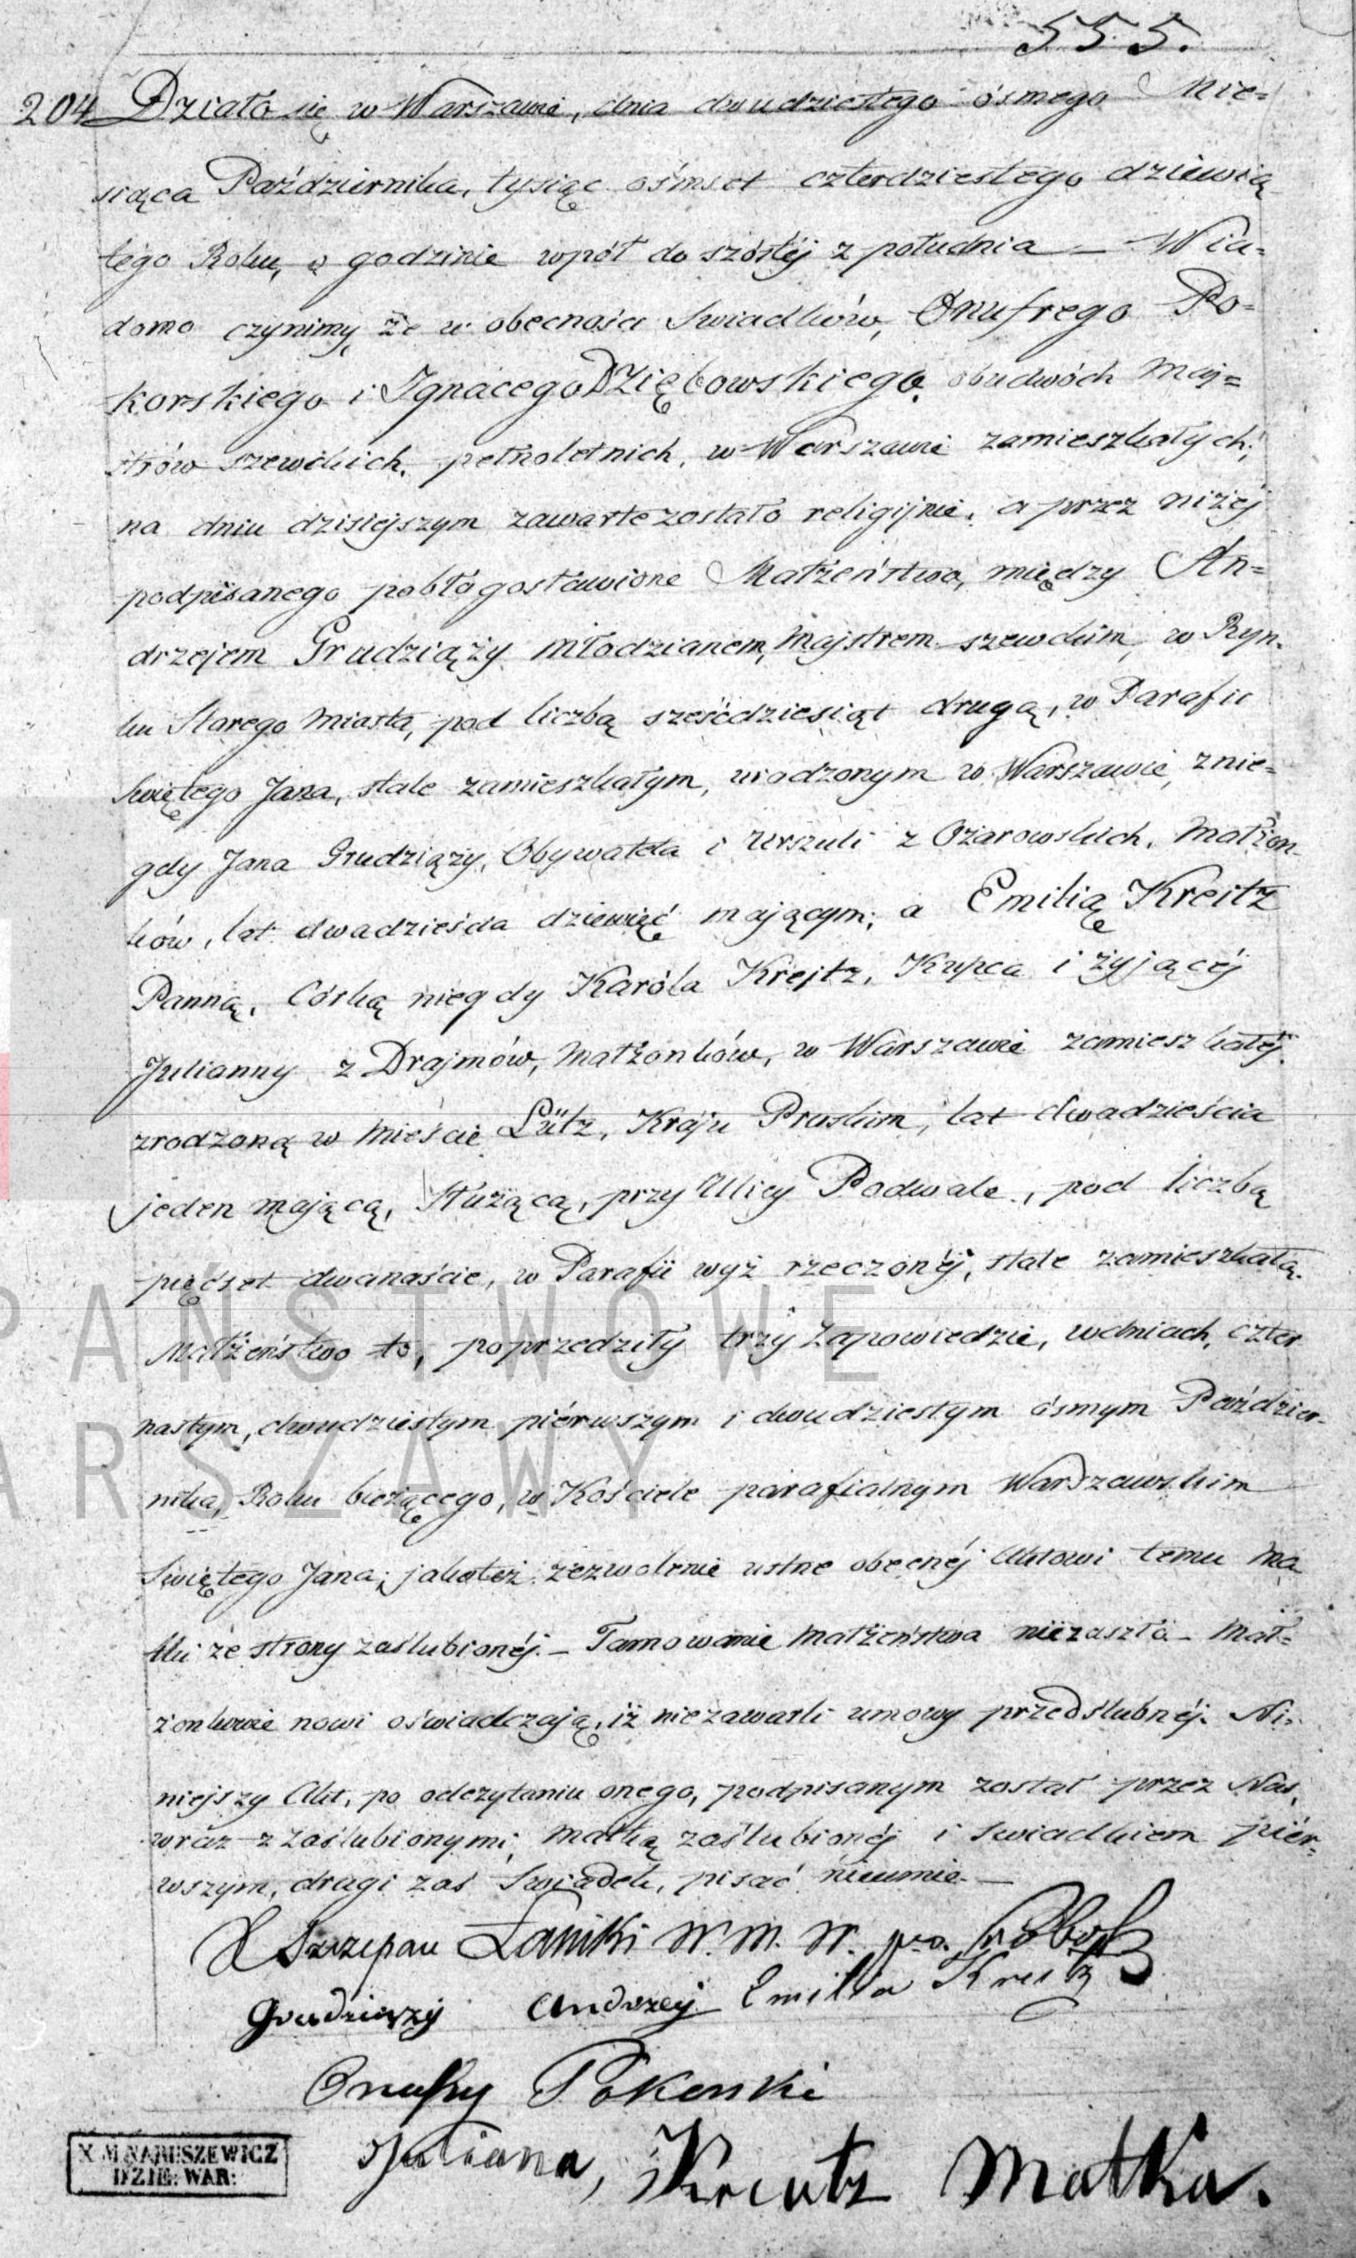 555.
204 Działo się w Warszawie, dnia dwudziestego ósmego Mie=
siąca Października, tysiąc ośmset czterdziestego dziewią
tego Roku, o godzinie wpół do szóstéj z południa — Wia=
domo czynimy, że w obecności Swiadków, Onufrego Po=
korskiego i Ignacego Dziębowskiego, obudwóch maj=
strów szewckich, pełnoletnich, w Warszawie zamieszkałych;
na dniu dzisiejszym zawarte zostało religijnie, a przez niżéj
podpisanego pobłogosławione Małżeństwo, między An=
drzejem Grudziąży młodzianem, majstrem szewckim, w Ryn-
ku Starego Miasta, pod liczbą sześćdziesiąt drugą, w Parafii
Swiętego Jana, stale zamieszkałym, urodzonym w Warszawie, z nie=
gdy Jana Grudziąży, Obywatela i Urszuli z Ożarowskich, Małżon-
ków, lat dwadzieścia dziewięć mającym; a Emilią Kreitz
Panną, Córką niegdy Karóla Krejtz, Kupca i żyjącéj
Julianny z Drajmów, Małżonków, w Warszawie zamieszkałéj,
zrodzoną w mieście Lütz, Kraju Pruskim, lat dwadzieścia
jeden mającą, Służącą, przy Ulicy Podwale, pod liczbą
pięćset dwanaście, w Parafii wyż rzeczonéj, stale zamieszkałą.
Małżeństwo to, poprzedziły trzy Zapowiedzie, w dniach, czter
nastym, dwudziestym piérwszym i dwudziestym ósmym Paździer-
nika, Roku bieżącego, w Kościele parafialnym Warszawskim
Swiętego Jana; jakoteż zezwolenie ustne obecnéj Aktowi temu Ma
tki ze strony zaślubionéj. — Tamowanie Małżeństwa nie zaszło — Mał=
żonkowie nowi oświadczają, iż nie zawarli umowy przedślubnéj. Ni-
niejszy Akt, po odczytaniu onego, podpisanym został przez Nas,
wraz z zaślubionymi, Matką zaślubionéj i Swiadkiem piér-
wszym, drugi zaś Swiadek, pisać nieumie. —
X Szczepan Łanicki W. M. W.
Grudziąży Andrzej Emilia Kreitz
Onufry Pokorski
Juliana, Kreutz Matka.
X M NARUSZEWICZ
DZIE: WAR:
PAŃSTWOWE
ARSZAWY